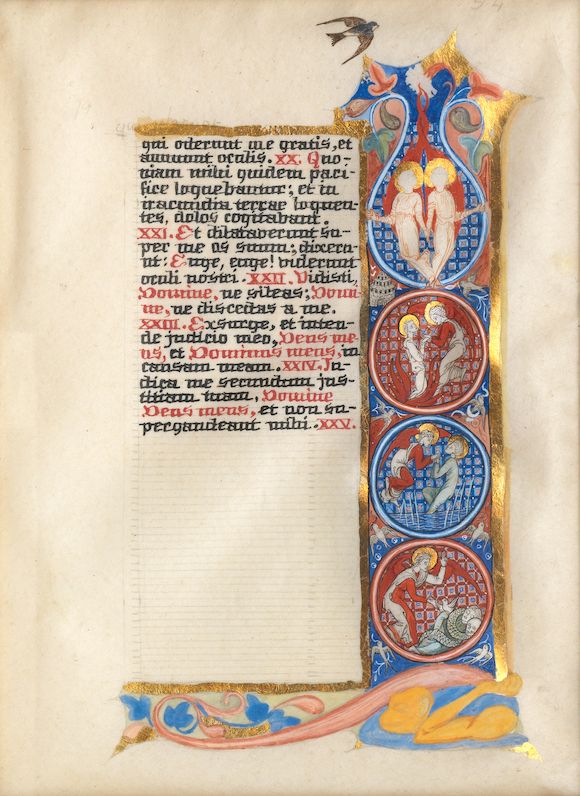 qui oderunt me gratis, et
annuunt oculis. XX. Quo-
niam mihi quidem paci-
fice loquebantur; et in
iracundia terrae loquen-
tes, dolos cogitabant.
XXI. Et dilataverunt su-
per me os suum; dixeru-
nt: Euge, euge! viderunt
oculi nostri. XXII. Vidisti,
Domine, ne sileas; Domi-
ne, ne discedas a me.
XXIII. Exsurge, et inten-
de judicio meo, Deus me-
us, et Dominus meus, in
causam meam. XXIV. Ju-
dica me secundum jus-
titiam tuam, Domine
Deus meus, et non su-
pergaudeant mihi. XXV.